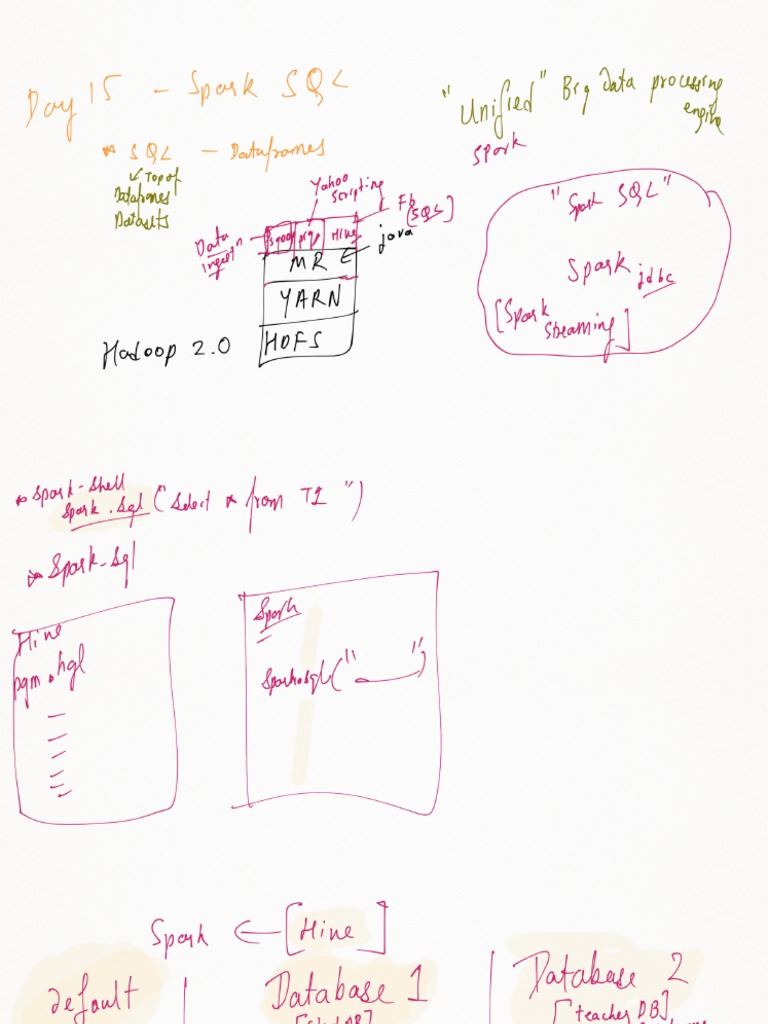 Day 15 - Spark SQL
"Unified" Big data processing
engine
Spark
* SQL - Dataframes
Top of
Dataframes
Datasets
Yahoo
scripting
Fb
[SQL]
Data
sqoop pig Hive
java
MR
YARN
HDFS
Hadoop 2.0
"Spark SQL"
Spark jdbc
[Spark
Streaming]
* Spark-shell
Spark.sql("select * from T1")
* Spark-sql
Hive
pgm.hql
Spark
Spark.sql("___")
Spark ← [Hive]
default
Database 1
Database 2
[teacher DB]